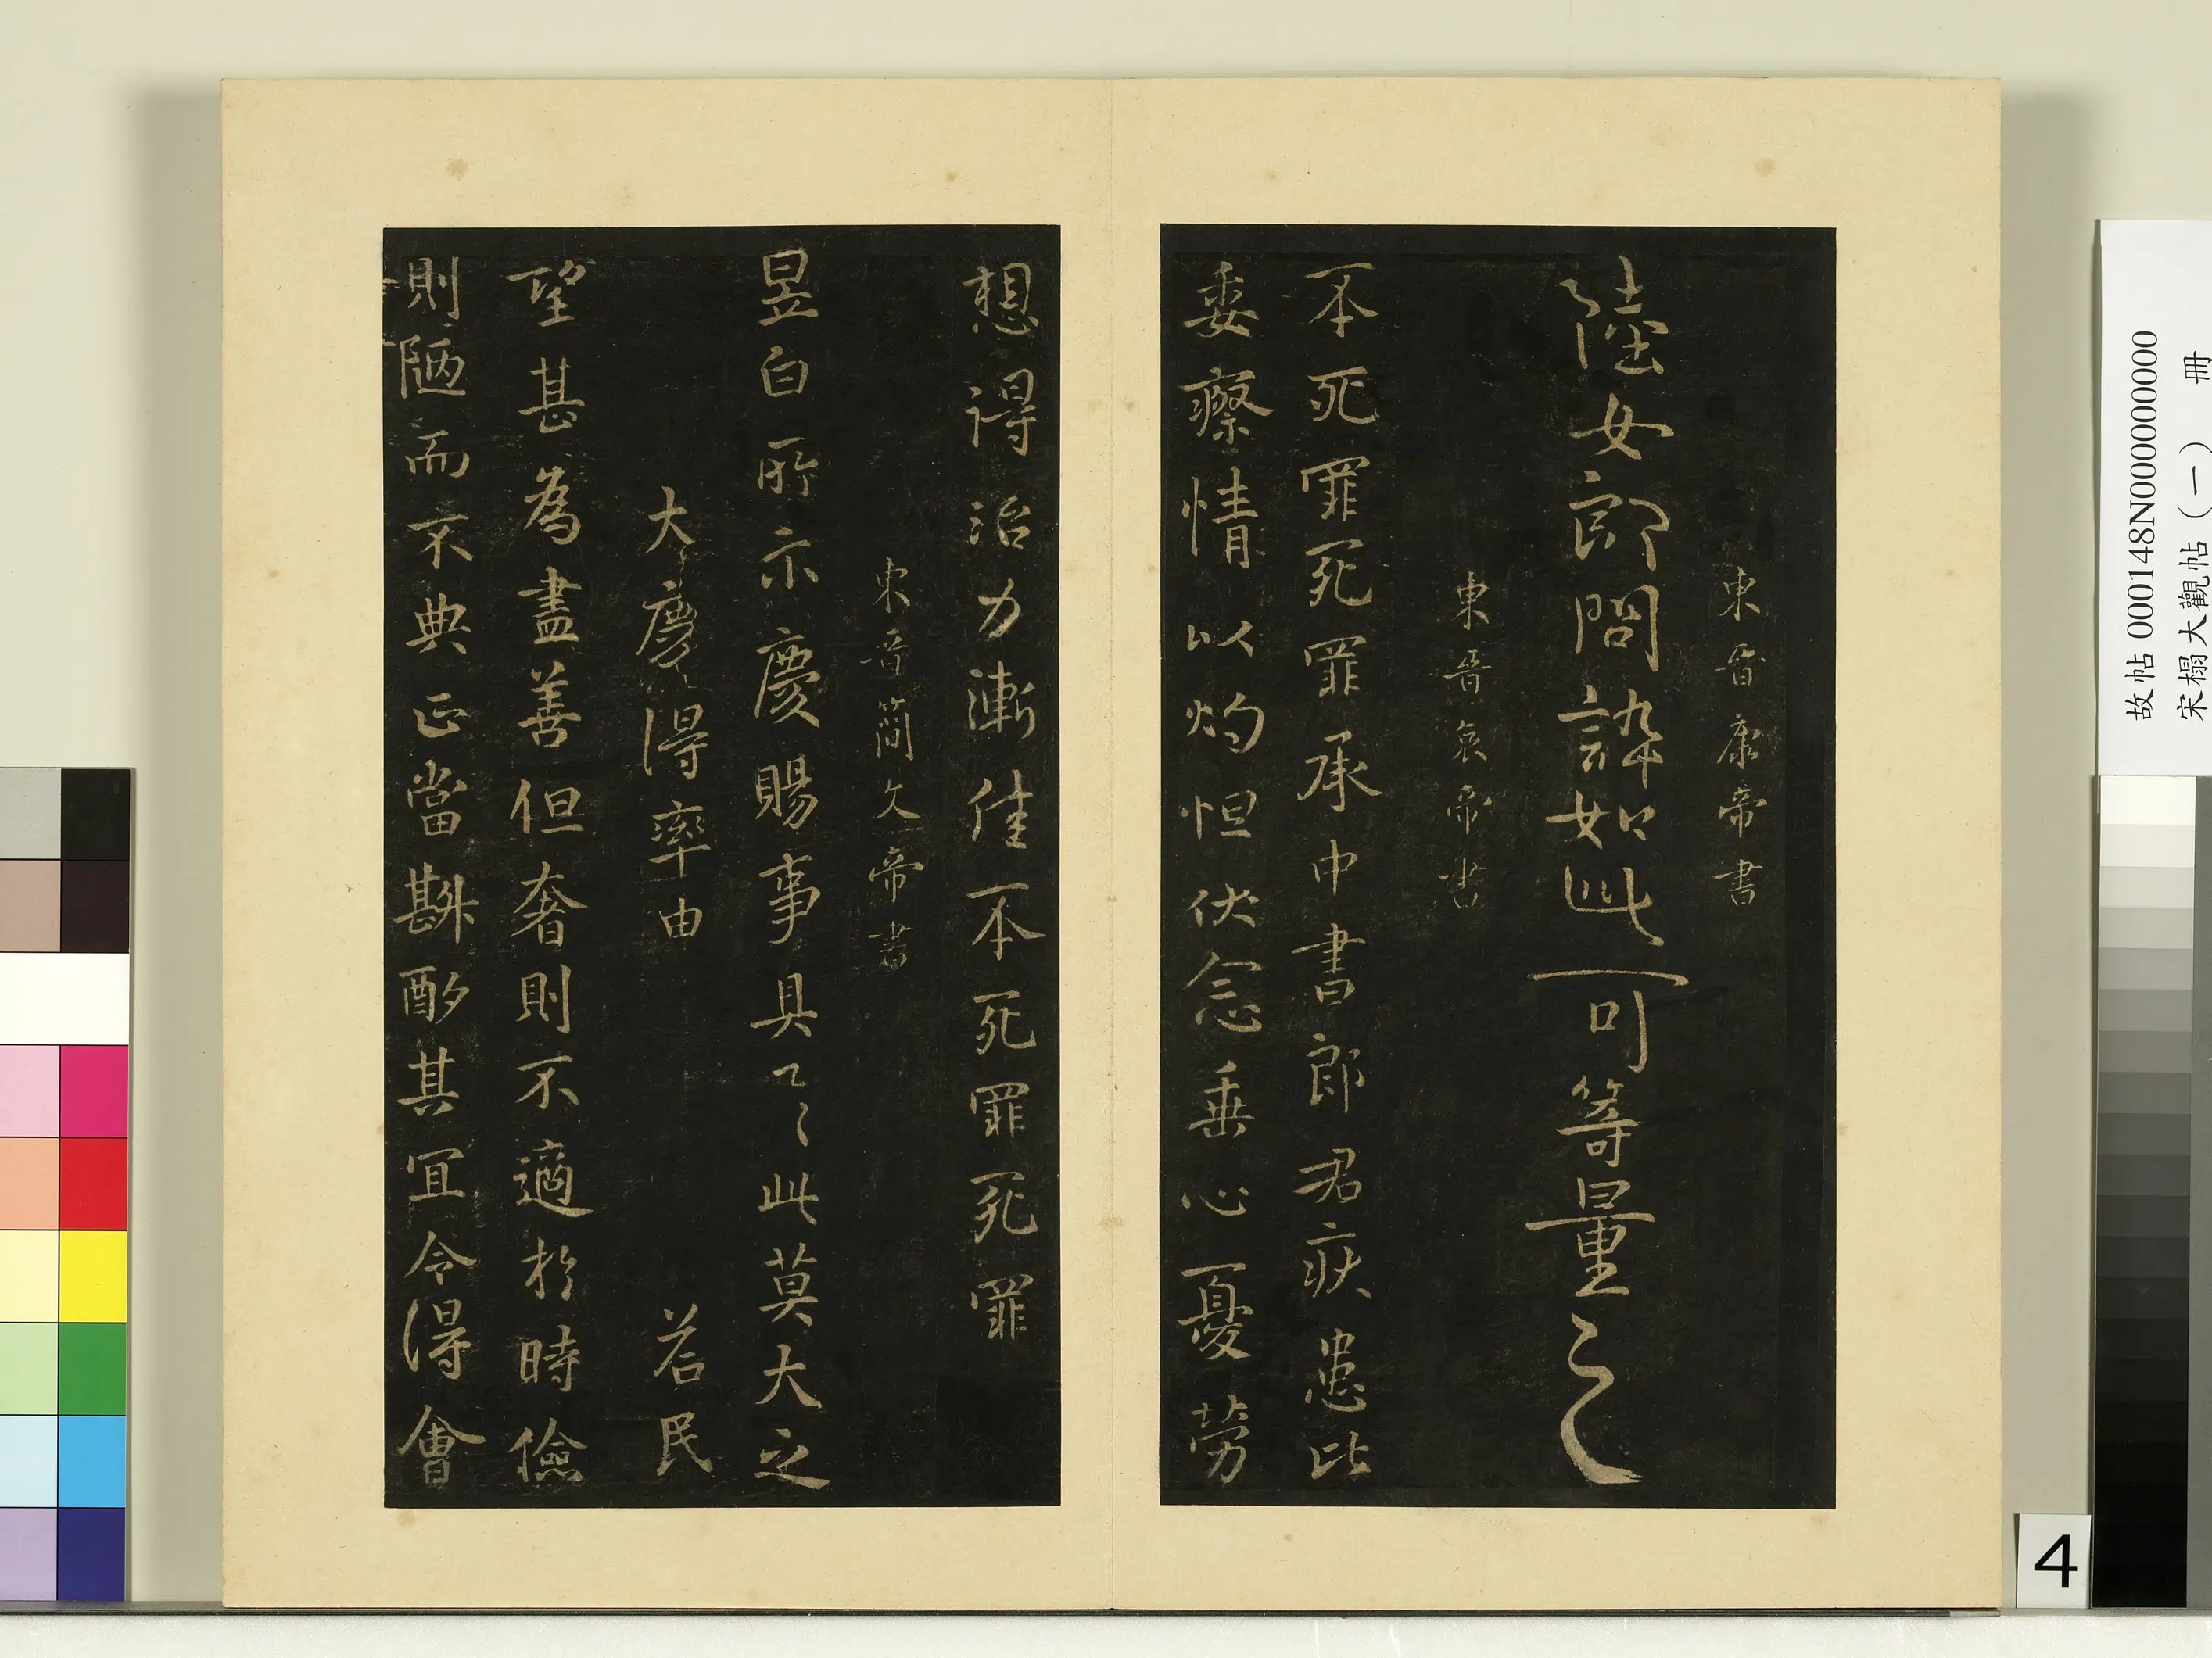 東晉康帝書
陸女郎問誶如此可等量之
東晉哀帝書
丕死罪死罪承中書郎君疾患比
委瘵情以灼怛伏念垂心憂勞
想得治力漸佳丕死罪死罪
東晉簡文帝書
昱白所示慶賜事具了〻此莫大之
大慶得率由 若民
望甚為盡善但奢則不適於時儉
則陋而不典正當斟酌其宜令得會
故帖 000148N000000000
宋榻大觀帖（一） 冊
4